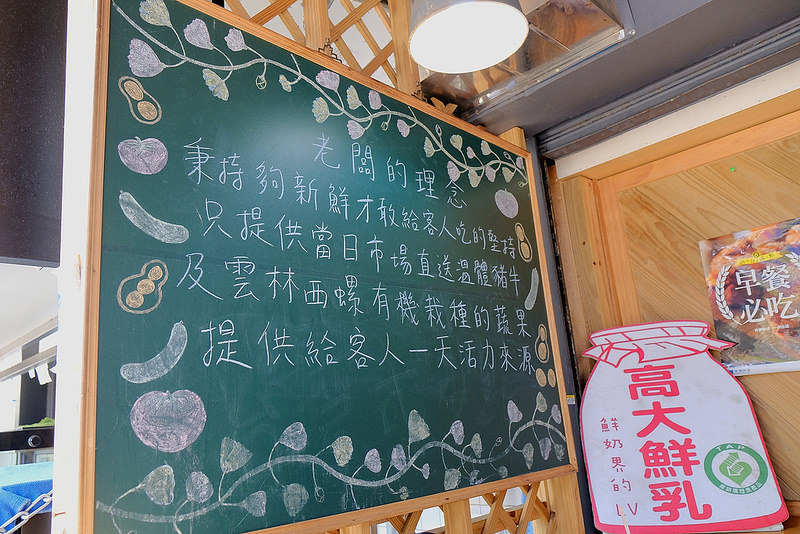 老闆的理念
秉持夠新鮮才敢給客人吃的堅持
只提供當日市場直送溫體豬牛
及雲林西螺有機栽種的蔬果
提供給客人一天活力來源
早餐
必吃
高大鮮乳
鮮奶界的LV
TAP